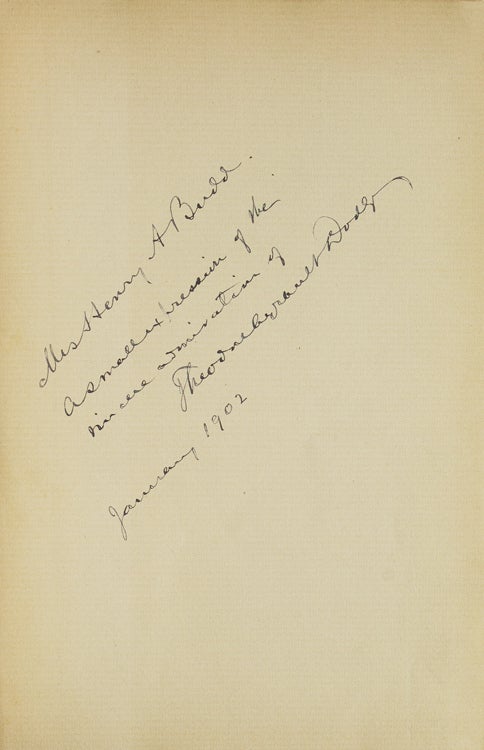 Mrs Henry A Budd.
A small expression of the
sincere admiration of
Theodore Ayrault Dodge
January 1902